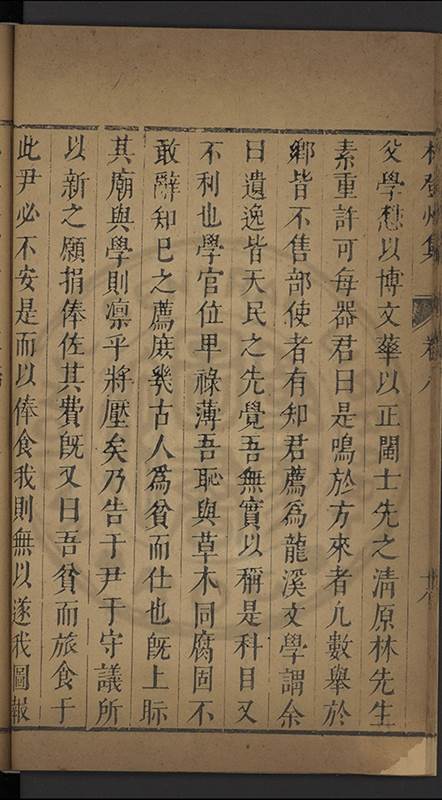 林登州集 卷八
父學懋以博文華以正閩士先之清原林先生
素重許可每器君曰是鳴於方來者凡數舉於
鄉皆不售部使者有知君薦為龍溪文學謂余
曰遺逸皆天民之先覺吾無實以稱是科目又
不利也學官位卑祿薄吾恥與草木同腐固不
敢辭知已之薦庶幾古人為貧而仕也旣上眎
其廟與學則凛乎將壓矣乃告于尹于守議所
以新之願捐俸佐其費旣又曰吾貧而旅食于
此尹必不安是而以俸食我則無以遂我圖報